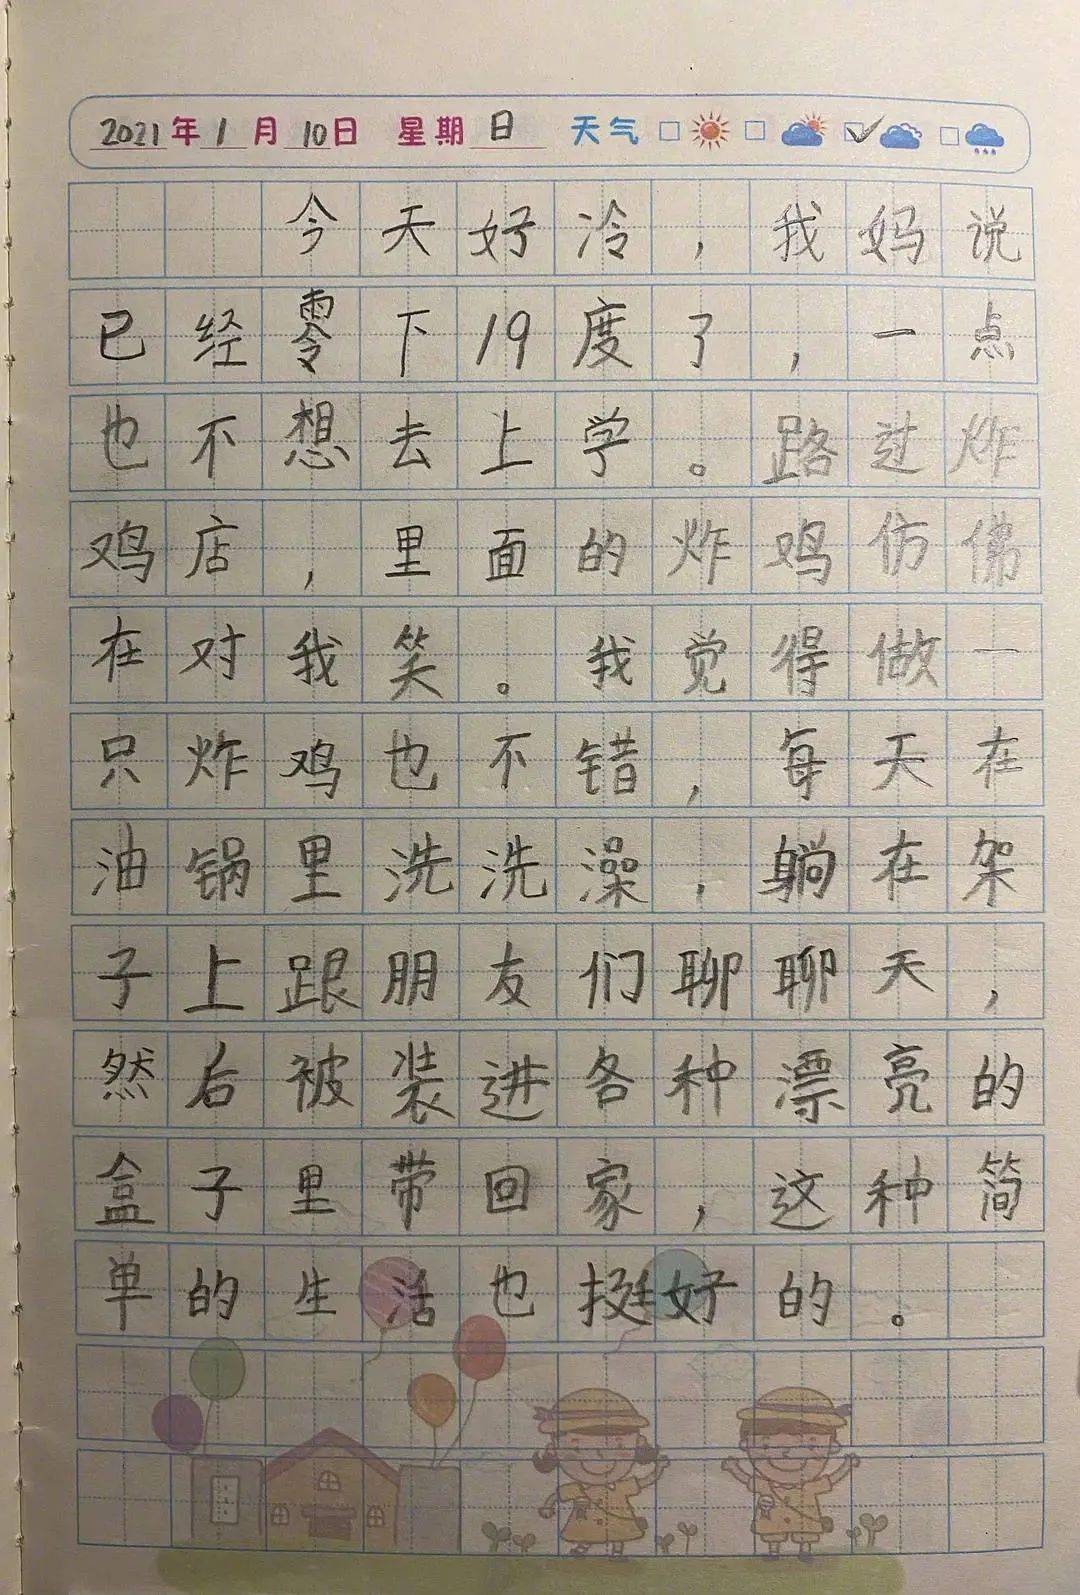 2021年1月10日 星期日 天气
今天好冷，我妈说
已经零下19度了，一点
也不想去上学。路过炸
鸡店，里面的炸鸡仿佛
在对我笑。我觉得做一
只炸鸡也不错，每天在
油锅里洗洗澡，躺在架
子上跟朋友们聊聊天，
然后被装进各种漂亮的
盒子里带回家，这种简
单的生活也挺好的。